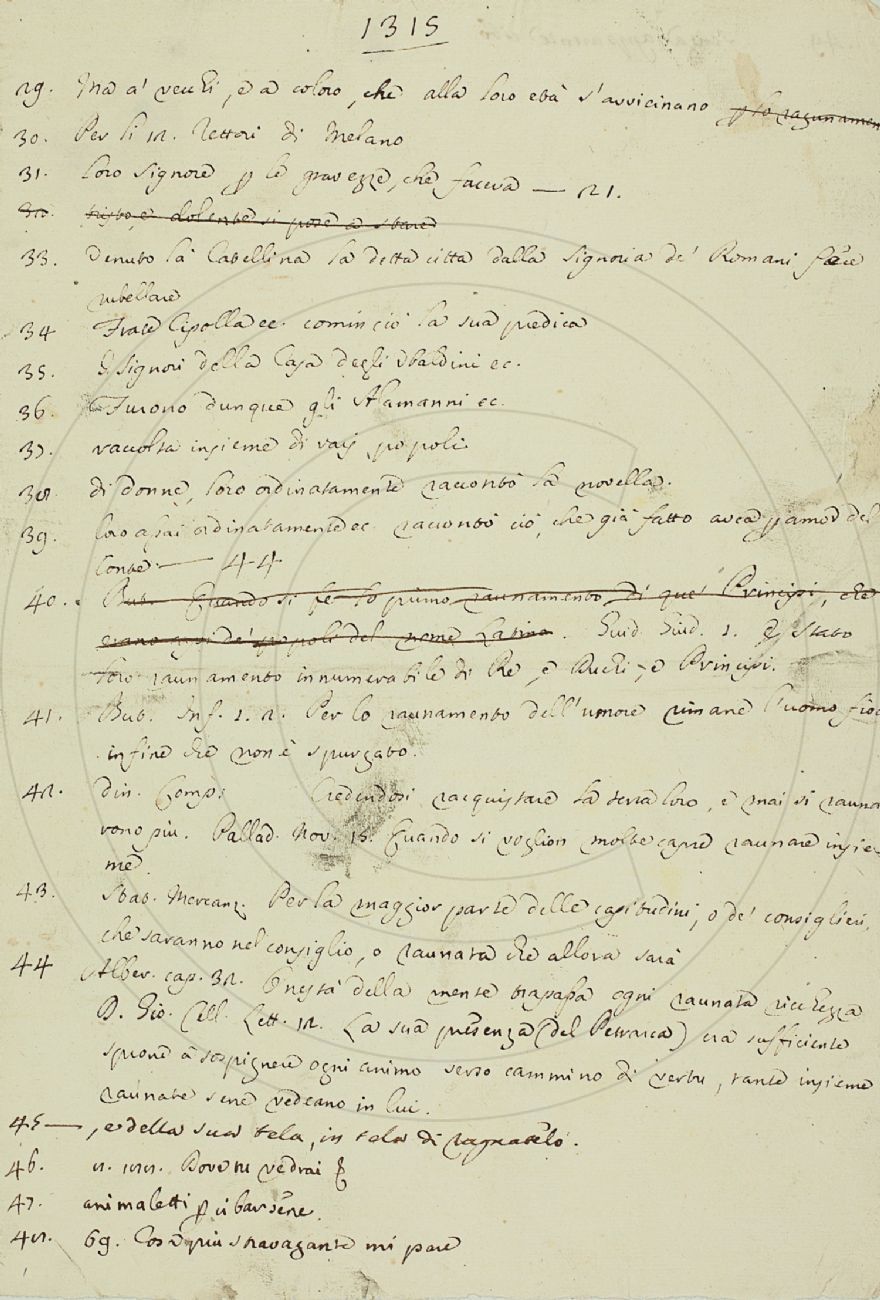 1315
29. Ma a' vecchi, e a coloro, che alla loro età s'avvicinano p lo ragunamen
30. Per li 12. Rettori di Melano
31. loro Signore p le gravezze, che faceva — 21.
32. tristo, e dolente si pose a stare
33. Venuto là Catellina la detta città dalla Signoria de' Romani fece
rubellare
34 Frate Cipolla ec. cominciò la sua predica
35. I Signori della Casa degli Ubaldini ec.
36. Furono dunque gli Alamanni ec.
37. raccolta insieme di varj popoli
38. di donne, loro ordinatamente raccontò la novella.
39. loro assai ordinatamente ec. raccontò ciò, che già fatto avea p amor del
Conte — 44
40. But. Quando si fe lo primo raunamento di que' Principi, che
erano de' popoli del nome Latino. Guid. Giud. 1. E stato
loro raunamento innumerabile di Re, e Duchi, e Principi.
41. But. Inf. 1. 2. Per lo raunamento dell'umore rimane l'uomo fioc
infine che non è spurgato.
42. Din. Comp. Credendosi racquistare la terra loro, e mai si rauna
rono più. Pallad. Nov. 15. Quando si voglion molte capre raunare insie
me.
43. Stat. Mercanz. Per la maggior parte delle capitudini, o de' consiglieri,
che saranno nel consiglio, o raunata che allora sarà
44 Alber. cap. 32. Onestà della mente trapassa ogni raunata ricchezza
D. Gio. Cell. Lett. 12. La sua presenza (del Petrarca) era sufficiente
sprone a sospignere ogni animo verso cammino di vertù, tante insieme
raunate se ne vedeano in lui.
45 — , e della sua tela, in tela di ragnatelo.
46. 2. 122. Dove tu vedrai
47. animaletti p cibarsene.
48. 69. Cosa più stravagante mi pare